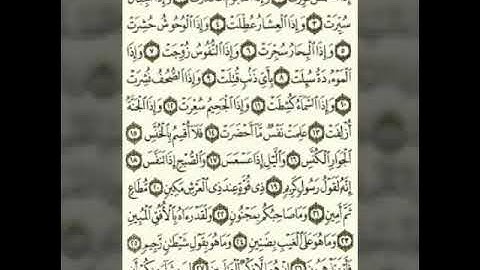 سُيِّرَتْ ٣ وَإِذَا ٱلْعِشَارُ عُطِّلَتْ ٤ وَإِذَا ٱلْوُحُوشُ حُشِرَتْ
٥ وَإِذَا ٱلْبِحَارُ سُجِّرَتْ ٦ وَإِذَا ٱلنُّفُوسُ زُوِّجَتْ ٧ وَإِذَا
ٱلْمَوْءُۥدَةُ سُئِلَتْ ٨ بِأَىِّ ذَنۢبٍ قُتِلَتْ ٩ وَإِذَا ٱلصُّحُفُ نُشِرَتْ
١٠ وَإِذَا ٱلسَّمَآءُ كُشِطَتْ ١١ وَإِذَا ٱلْجَحِيمُ سُعِّرَتْ ١٢ وَإِذَا ٱلْجَنَّةُ
أُزْلِفَتْ ١٣ عَلِمَتْ نَفْسٌ مَّآ أَحْضَرَتْ ١٤ فَلَآ أُقْسِمُ بِٱلْخُنَّسِ ١٥
ٱلْجَوَارِ ٱلْكُنَّسِ ١٦ وَٱلَّيْلِ إِذَا عَسْعَسَ ١٧ وَٱلصُّبْحِ إِذَا تَنَفَّسَ ١٨
إِنَّهُۥ لَقَوْلُ رَسُولٍ كَرِيمٍ ١٩ ذِى قُوَّةٍ عِندَ ذِى ٱلْعَرْشِ مَكِينٍ ٢٠ مُّطَاعٍ
ثَمَّ أَمِينٍ ٢١ وَمَا صَاحِبُكُم بِمَجْنُونٍ ٢٢ وَلَقَدْ رَءَاهُ بِٱلْأُفُقِ ٱلْمُبِينِ
٢٣ وَمَا هُوَ عَلَى ٱلْغَيْبِ بِضَنِينٍ ٢٤ وَمَا هُوَ بِقَوْلِ شَيْطَٰنٍ رَّجِيمٍ ٢٥